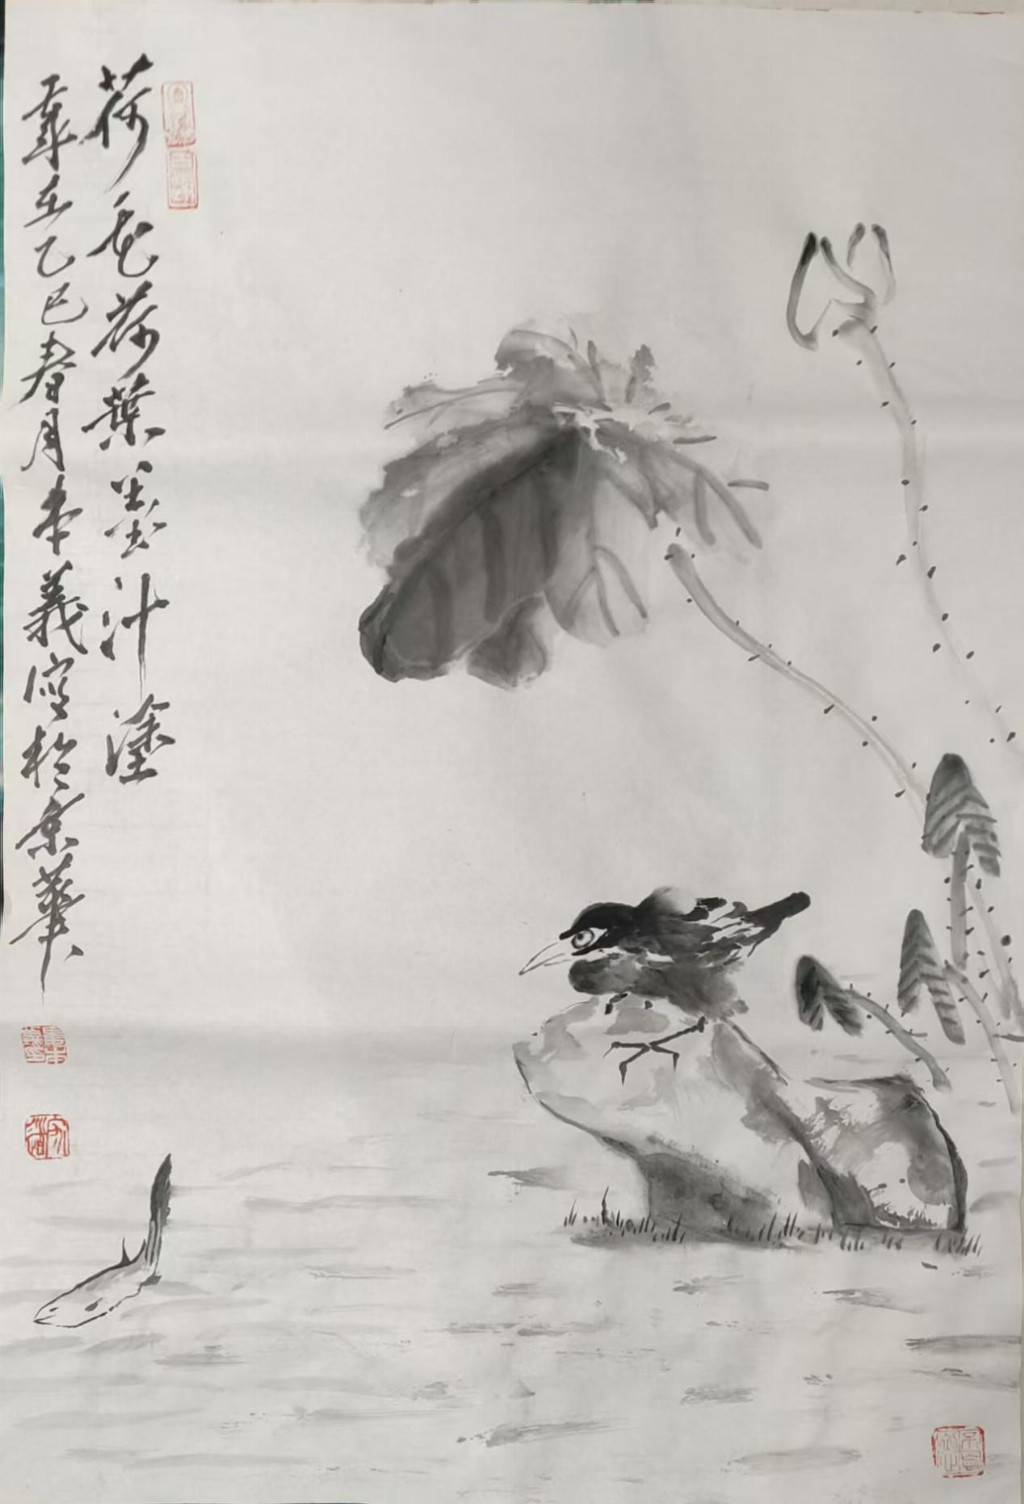 荷花荷葉墨汁塗
歲在乙巳春月本義寫於京華